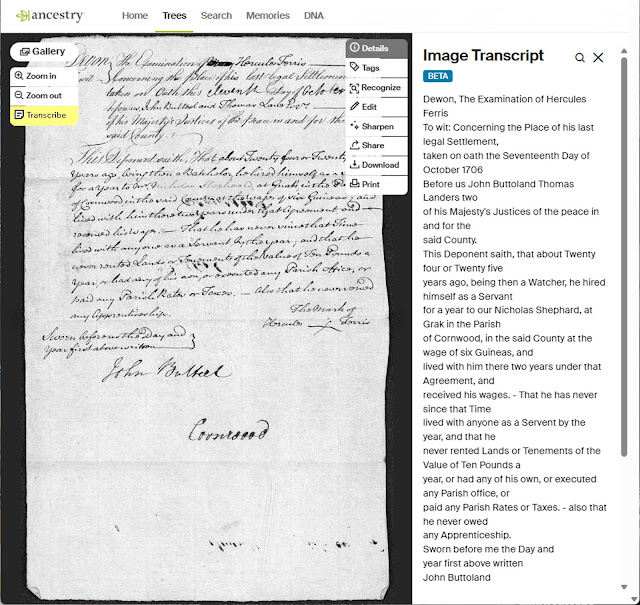 ancestry
Home Trees Search Memories DNA
Gallery
Zoom in
Zoom out
Transcribe
Details
Tags
Recognize
Edit
Sharpen
Share
Download
Print
The Examination of Hercules Ferris
to wit Concerning the Place of his last legal Settlem
taken on Oath this Day of Octob
before us John Bulteel and Thomas Lane
of his Majesty's Justices of the peace in and for the
said County
This Deponent saith, That about Twenty four or Twenty
years ago, being then a Batchelor, he hired himself as a
for a year to Nicholas at in the
of Cornwood in the said County at the wages of six Guineas, and
lived with him there two years under that Agreement and
received his wages. — That he has never since that Time
lived with anyone as a Servant by the year, and that he
never rented Lands or Tenements of the Value of Ten Pounds a
year, or had any of his own, or executed any Parish Office, or
paid any Parish Rates or Taxes. — Also that he never served
any Apprenticeship.
The Mark of
Hercules Ferris
Sworn before us the Day and
year first above written
John Bulteel
Cornwood
Image Transcript
BETA
Dewon, The Examination of Hercules
Ferris
To wit: Concerning the Place of his last
legal Settlement,
taken on oath the Seventeenth Day of
October 1706
Before us John Buttoland Thomas
Landers two
of his Majesty's Justices of the peace in
and for the
said County.
This Deponent saith, that about Twenty
four or Twenty five
years ago, being then a Watcher, he hired
himself as a Servant
for a year to our Nicholas Shephard, at
Grak in the Parish
of Cornwood, in the said County at the
wage of six Guineas, and
lived with him there two years under that
Agreement, and
received his wages. - That he has never
since that Time
lived with anyone as a Servent by the
year, and that he
never rented Lands or Tenements of the
Value of Ten Pounds a
year, or had any of his own, or executed
any Parish office, or
paid any Parish Rates or Taxes. - also that
he never owed
any Apprenticeship.
Sworn before me the Day and
year first above written
John Buttoland